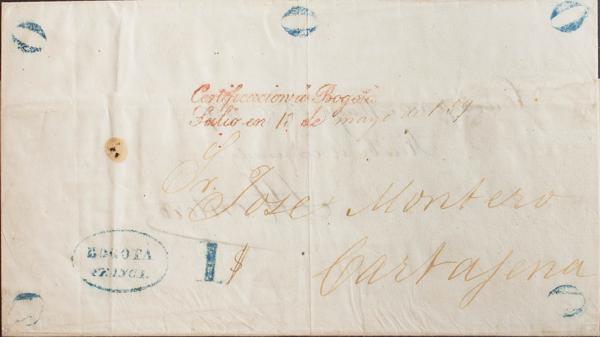 Certificacion a Bogotá
Salió en 12 de mayo de 1859
Sr. Jose Montero
Cartajena
BOGOTA
FRANCA.
1 $